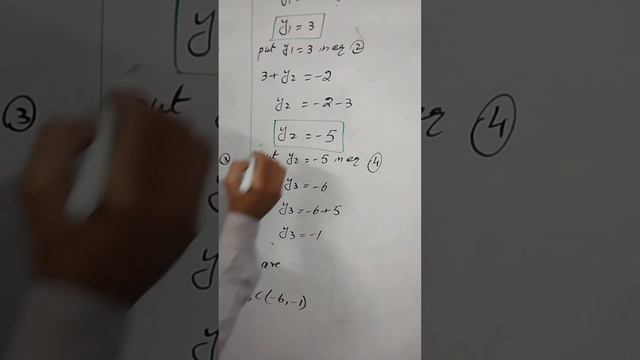 y₁ = 3
put y₁ = 3 in eq ②
3 + y₂ = -2
y₂ = -2 - 3
y₂ = -5
③
y₂ = -5 in eq ④
y₃ = -6
y₃ = -6 + 5
y₃ = -1
are
, C(-6, -1)